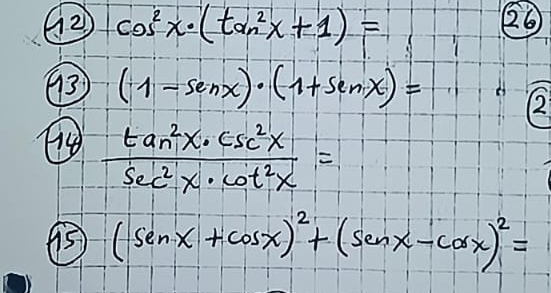 (12) cos²x·(tan²x+1) =
(26)
(13) (1-senx)·(1+senx) =
(2
(14) tan²x·csc²x
sec²x·cot²x =
(15) (senx+cosx)²+(senx-cosx)² =